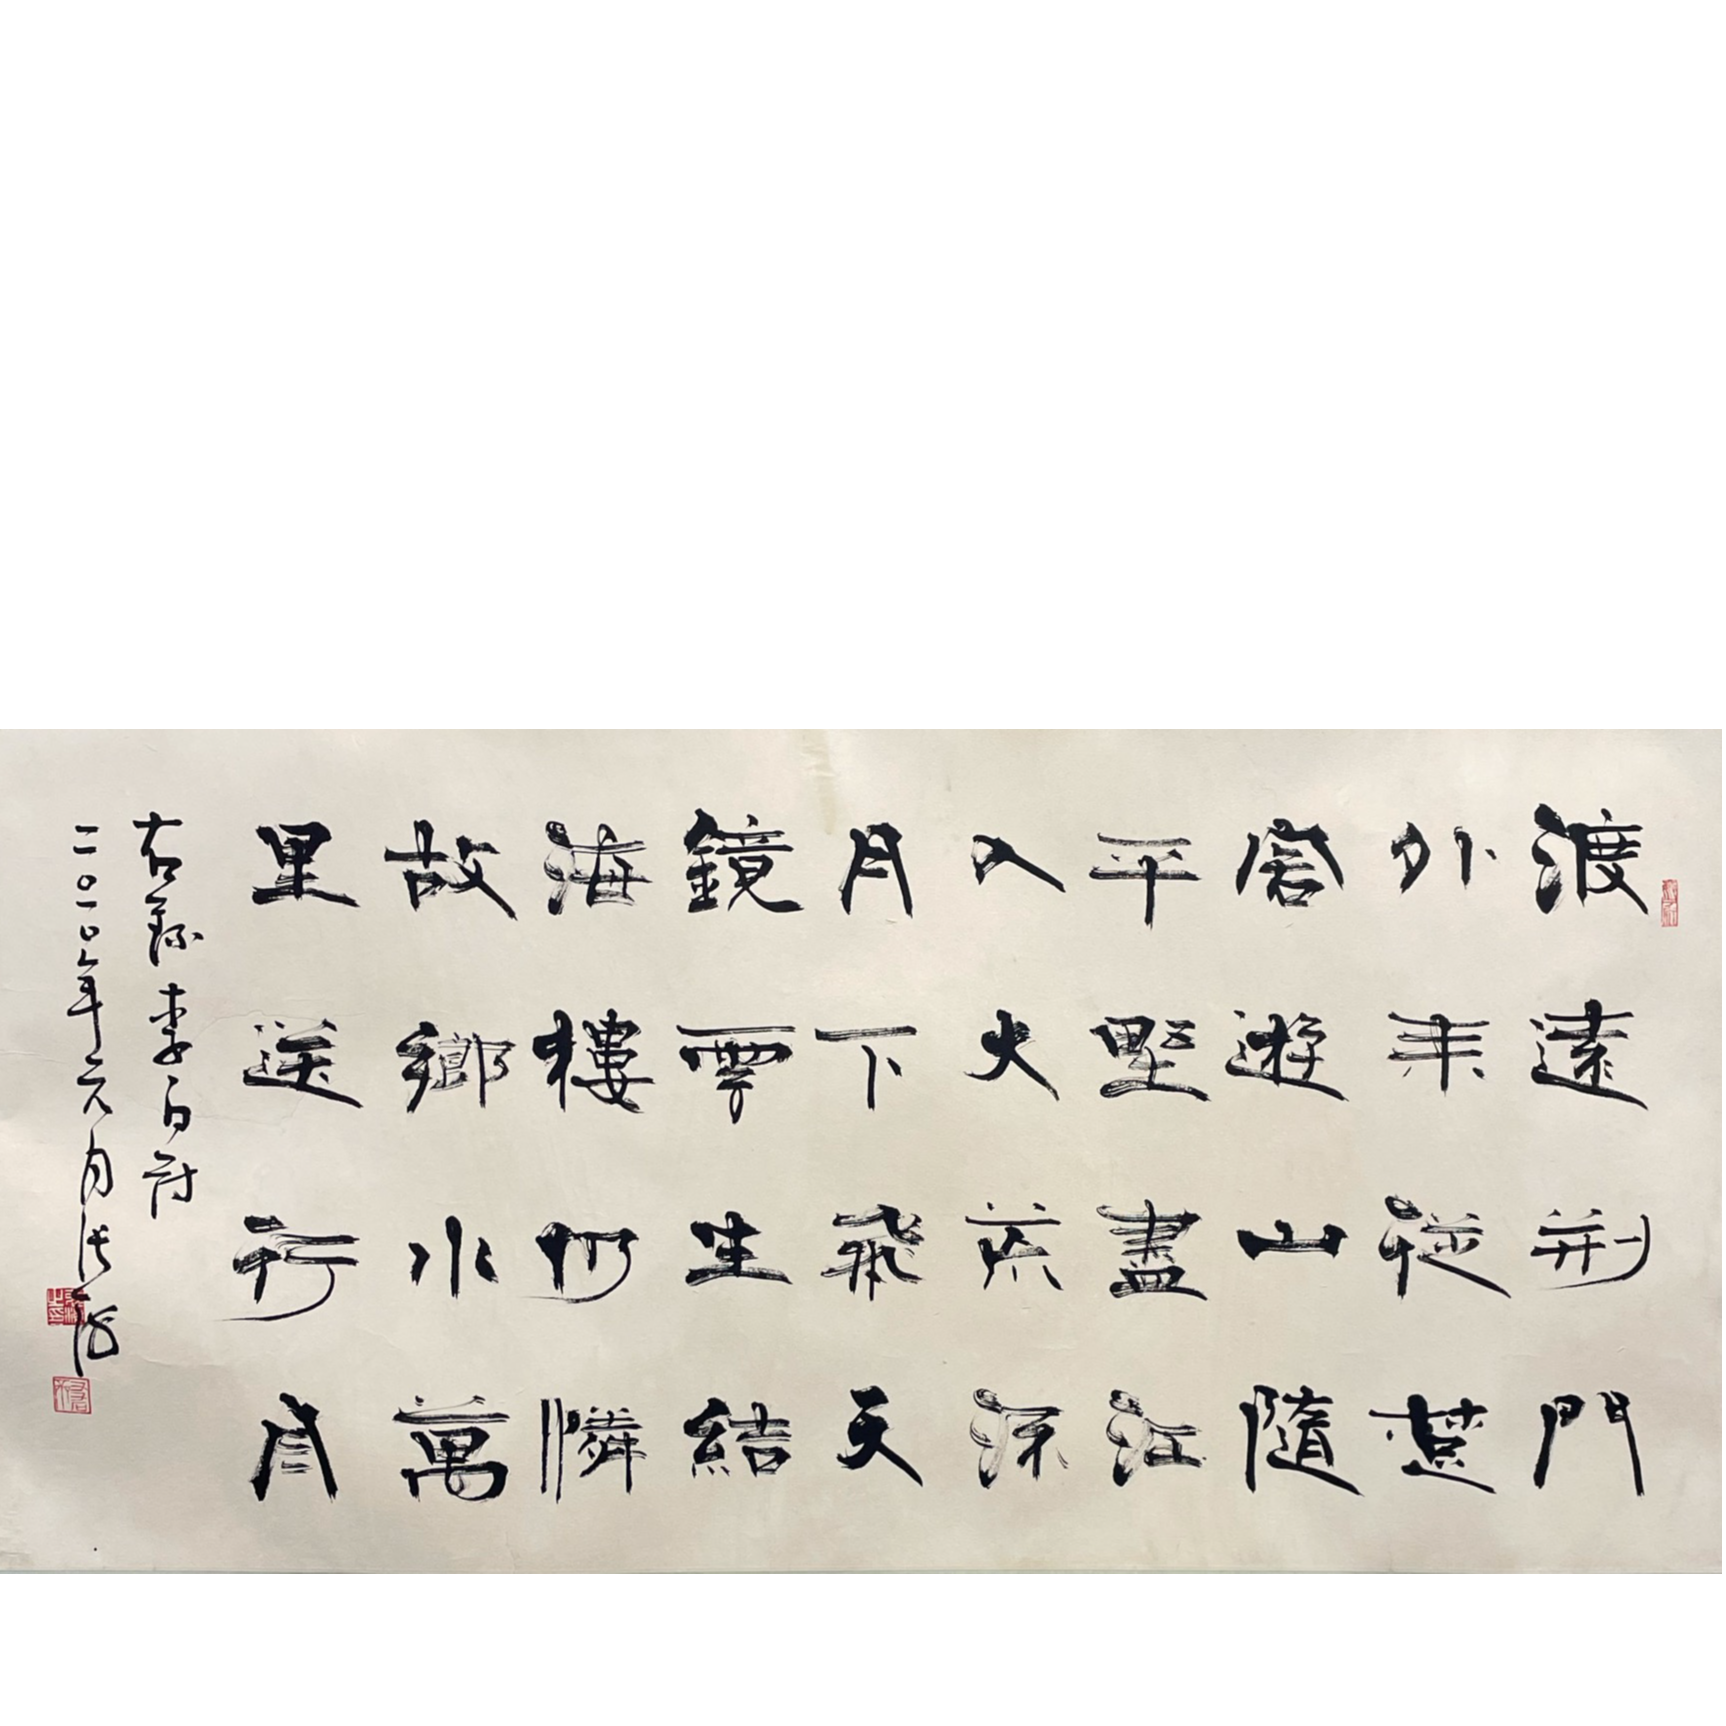 渡遠荊門
外來從楚
客遊山隨
平野盡江
入大荒流
月下飛天
鏡雲生結
海樓仍憐
故鄉水萬
里送行舟
右錄李白詩
二〇一〇年元月張海